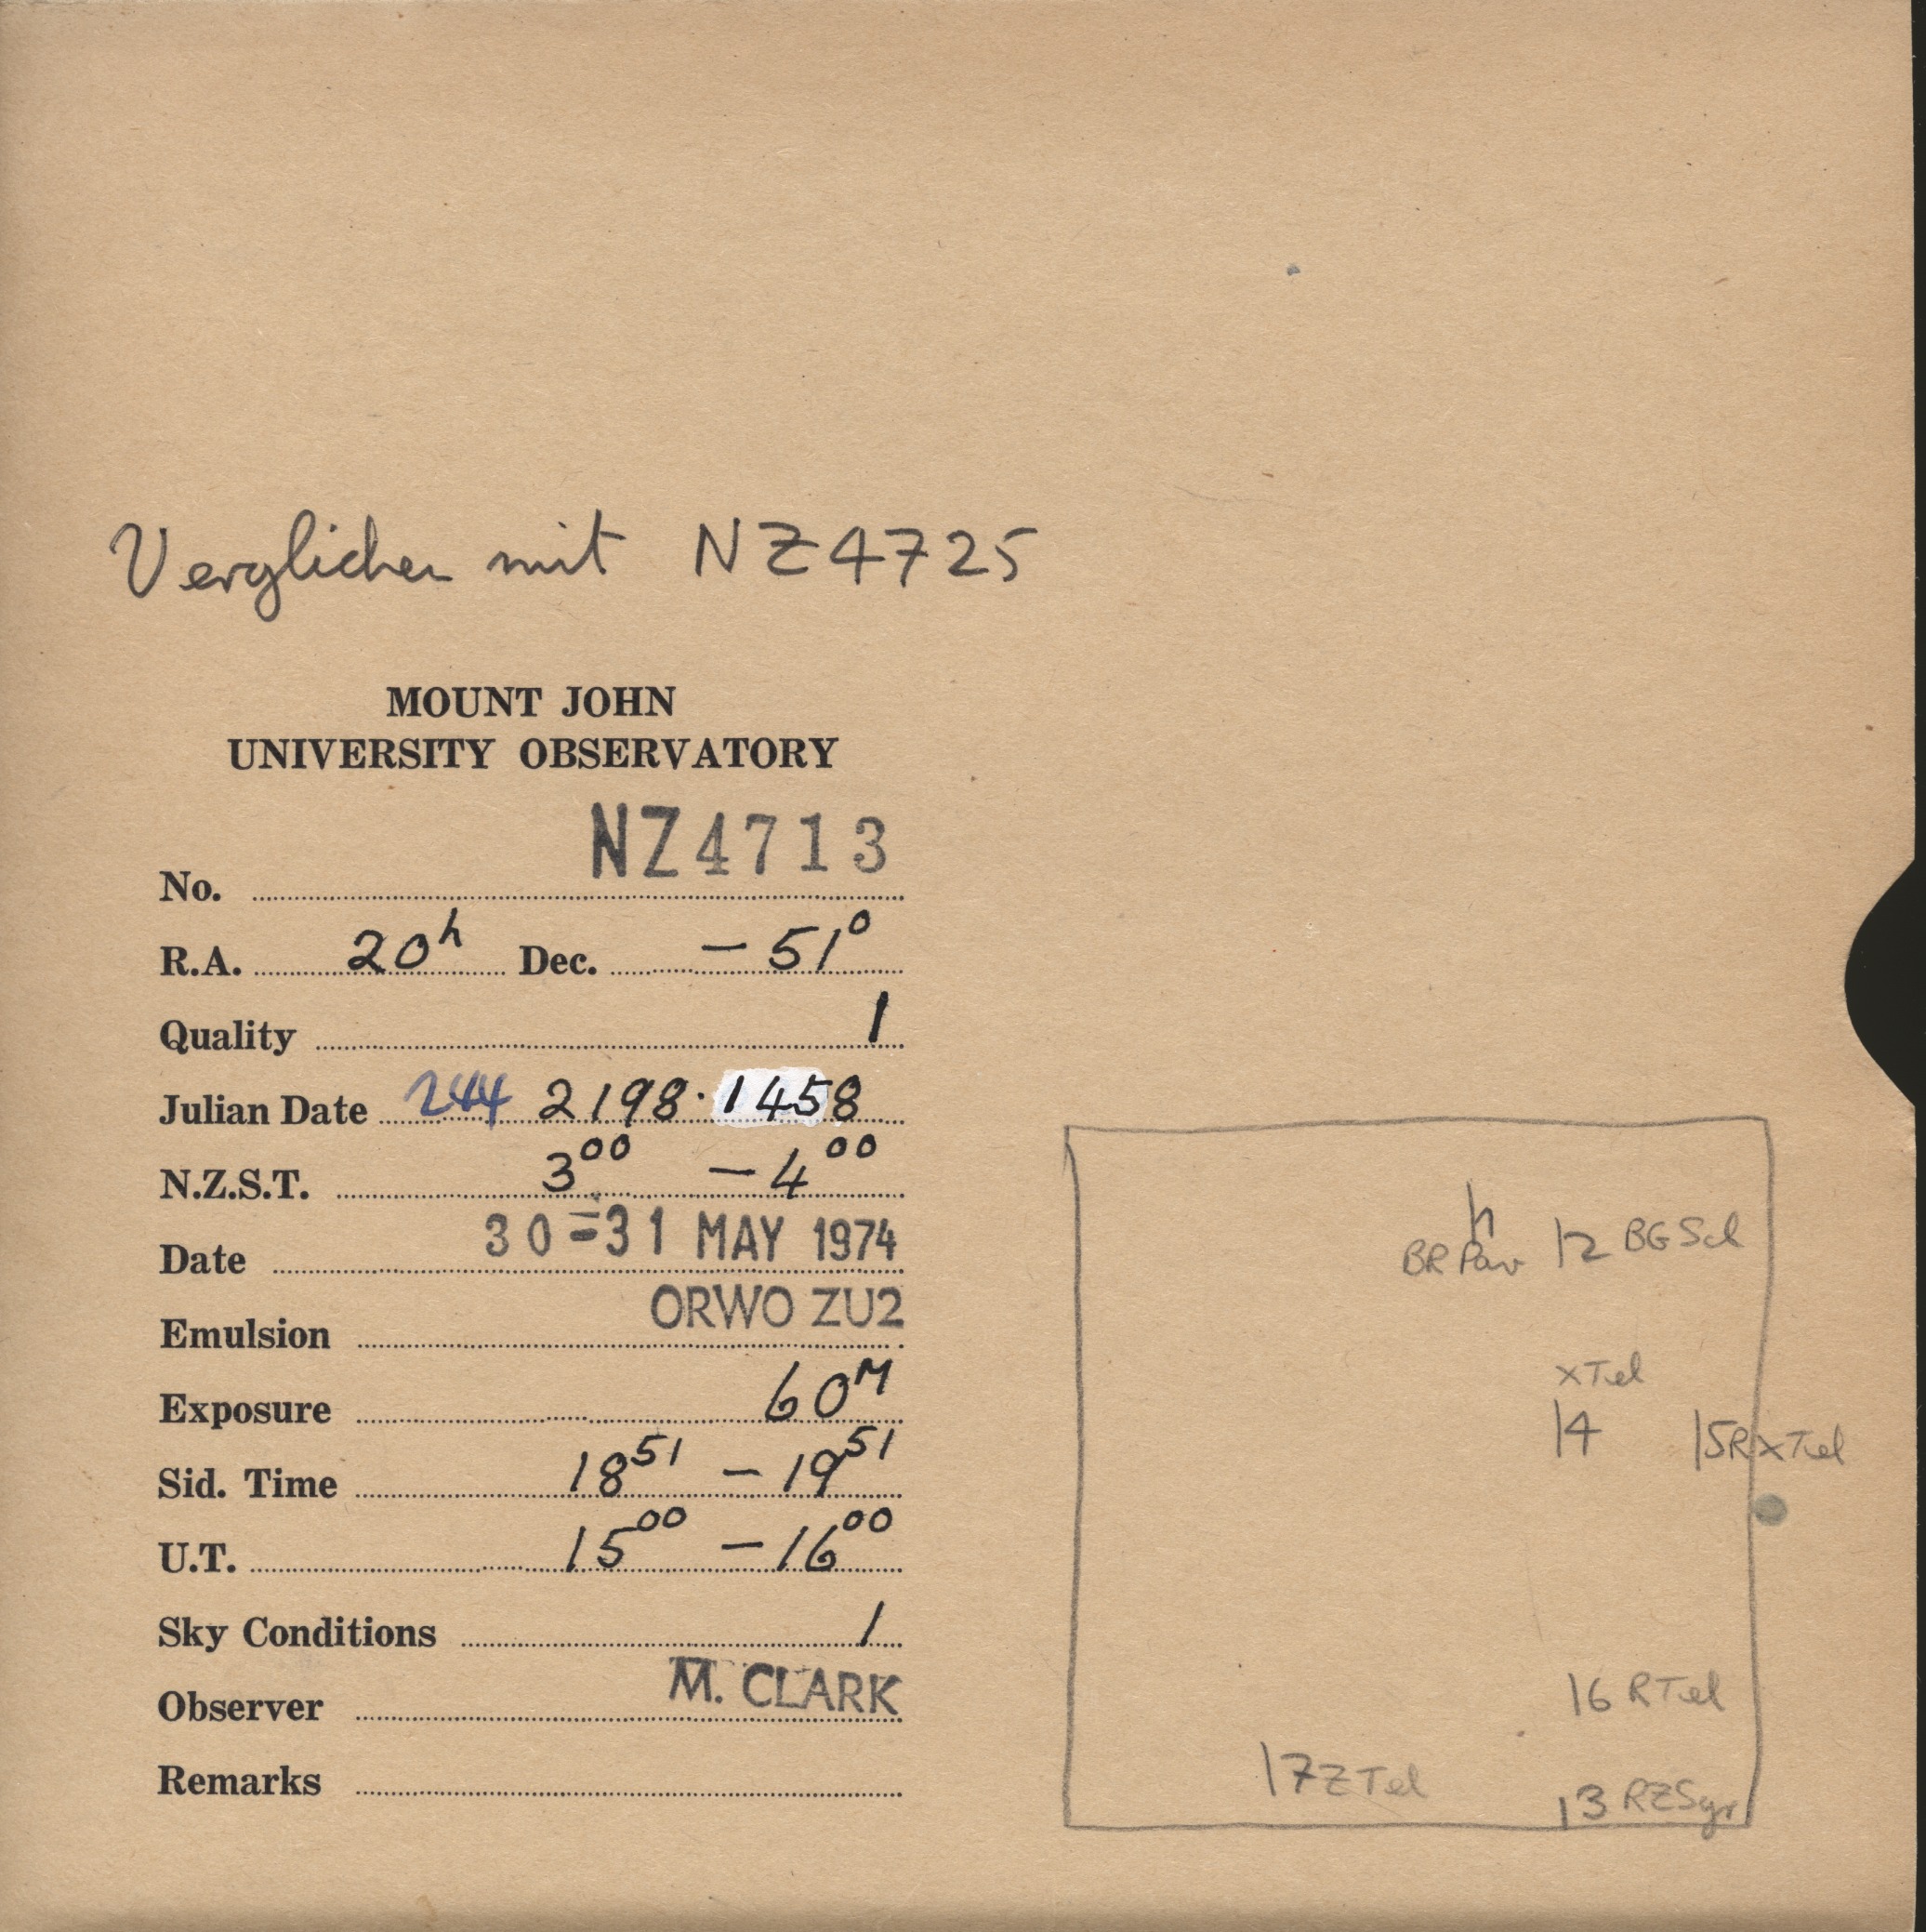 Verglichen mit NZ4725
MOUNT JOHN
UNIVERSITY OBSERVATORY
No. NZ4713
R.A. 20h Dec. -51°
Quality 1
Julian Date 244 2198.1458
N.Z.S.T. 3 00 - 4 00
Date 30-31 MAY 1974
Emulsion ORWO ZU2
Exposure 60M
Sid. Time 18 51 - 19 51
U.T. 15 00 - 16 00
Sky Conditions 1
Observer M. CLARK
Remarks
BR Pav
12
xTel
14
15 RxTel
16 RTel
17 ZTel
13 RZSgr